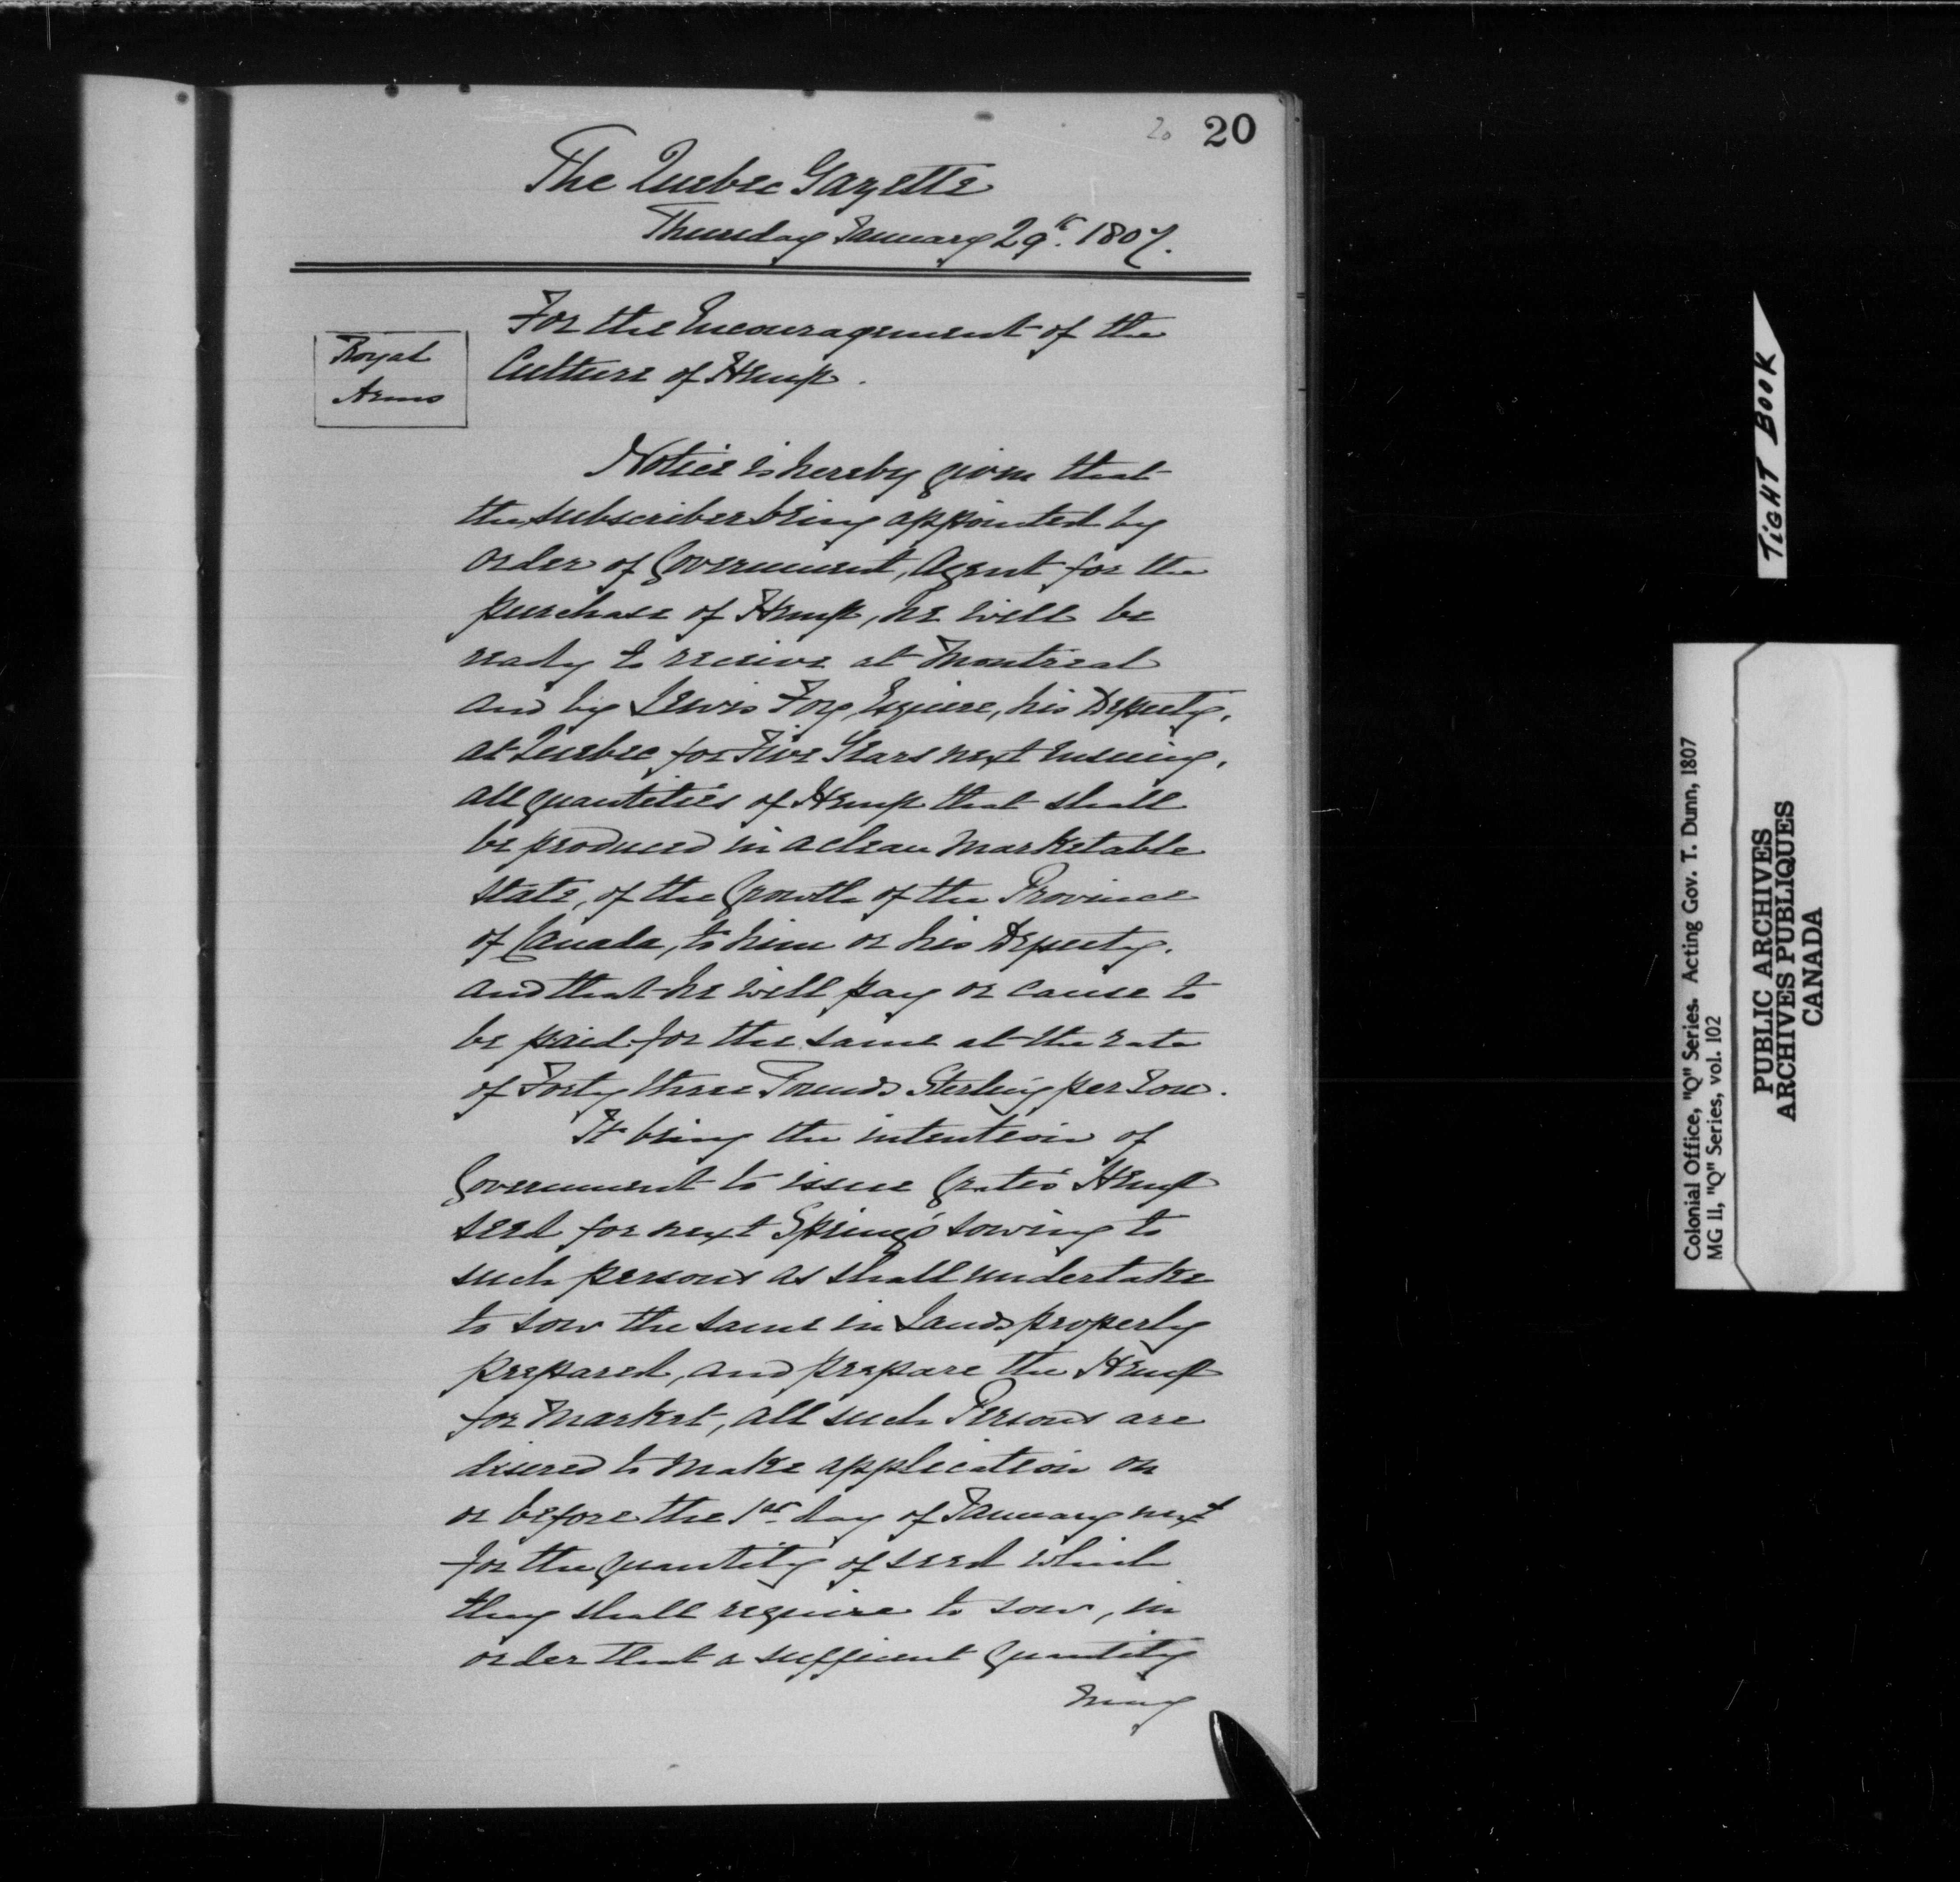 20 20
The Quebec Gazette
Thursday January 29th. 1807.
For the Encouragement of the
Culture of Hemp.
Royal
Arms
Notice is hereby given that
the subscriber being appointed by
order of Government, Agent for the
purchase of Hemp, he will be
ready to receive at Montreal
and by Lewis Foy, Esquire, his Deputy,
at Quebec for Five Years next ensuing,
all quantities of Hemp that shall
be produced in a clean marketable
state, of the Growth of the Province
of Canada, to him or his Deputy.
and that he will pay or cause to
be paid for the same at the rate
of Forty three Pounds Sterling per Ton.
It being the intention of
Government to issue Gratis Hemp
seed for next Spring's sowing to
such persons as shall undertake
to sow the same in Lands properly
prepared, and prepare the Hemp
for Market, all such Persons are
disired to make application on
or before the 1st day of January next
for the quantity of seed which
they shall require to sow, in
order that a sufficient Quantity
may
TIGHT BOOK
Colonial Office, "Q" Series. Acting Gov. T. Dunn, 1807
MG 11, "Q" Series, vol. 102
PUBLIC ARCHIVES
ARCHIVES PUBLIQUES
CANADA